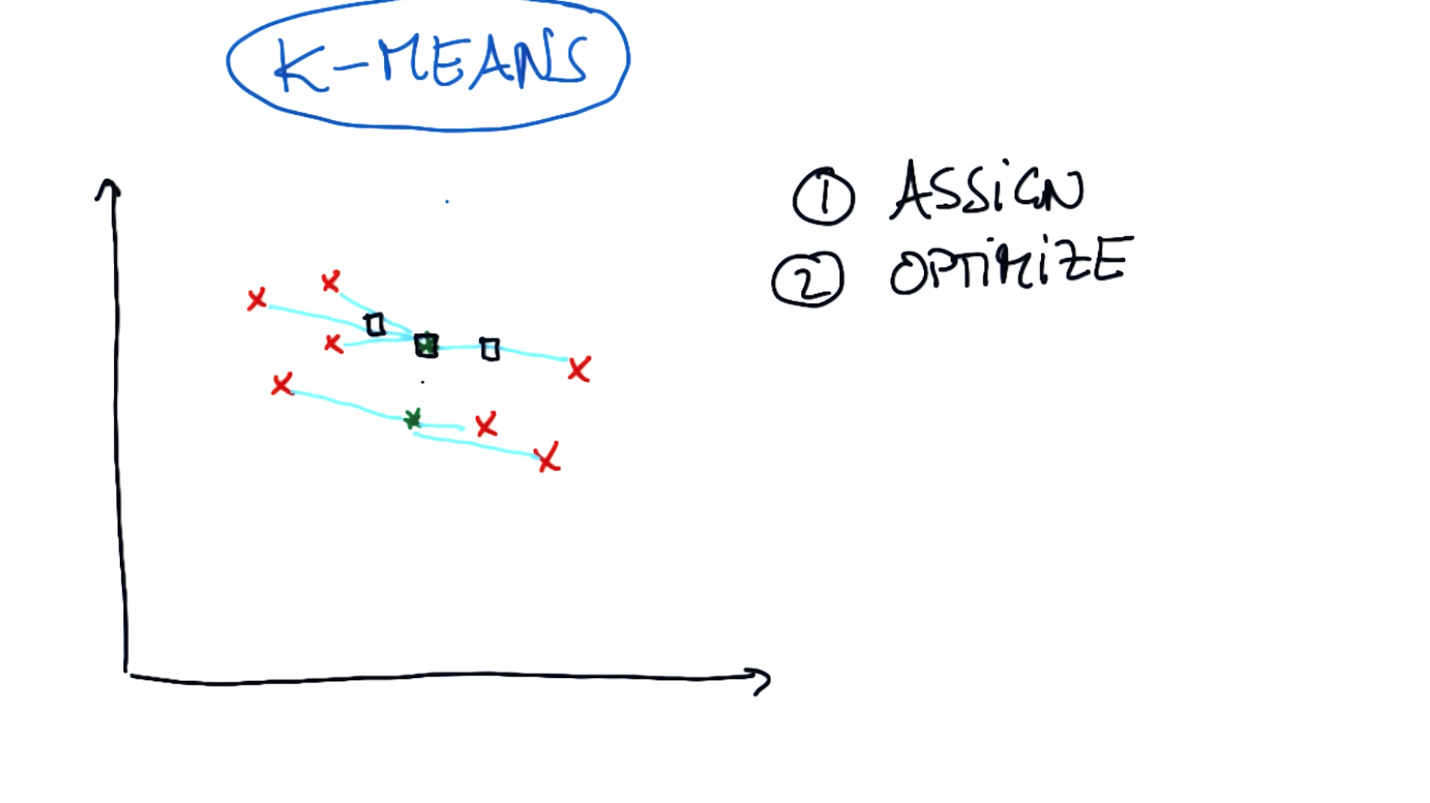 K-MEANS
① ASSIGN
② OPTIMIZE